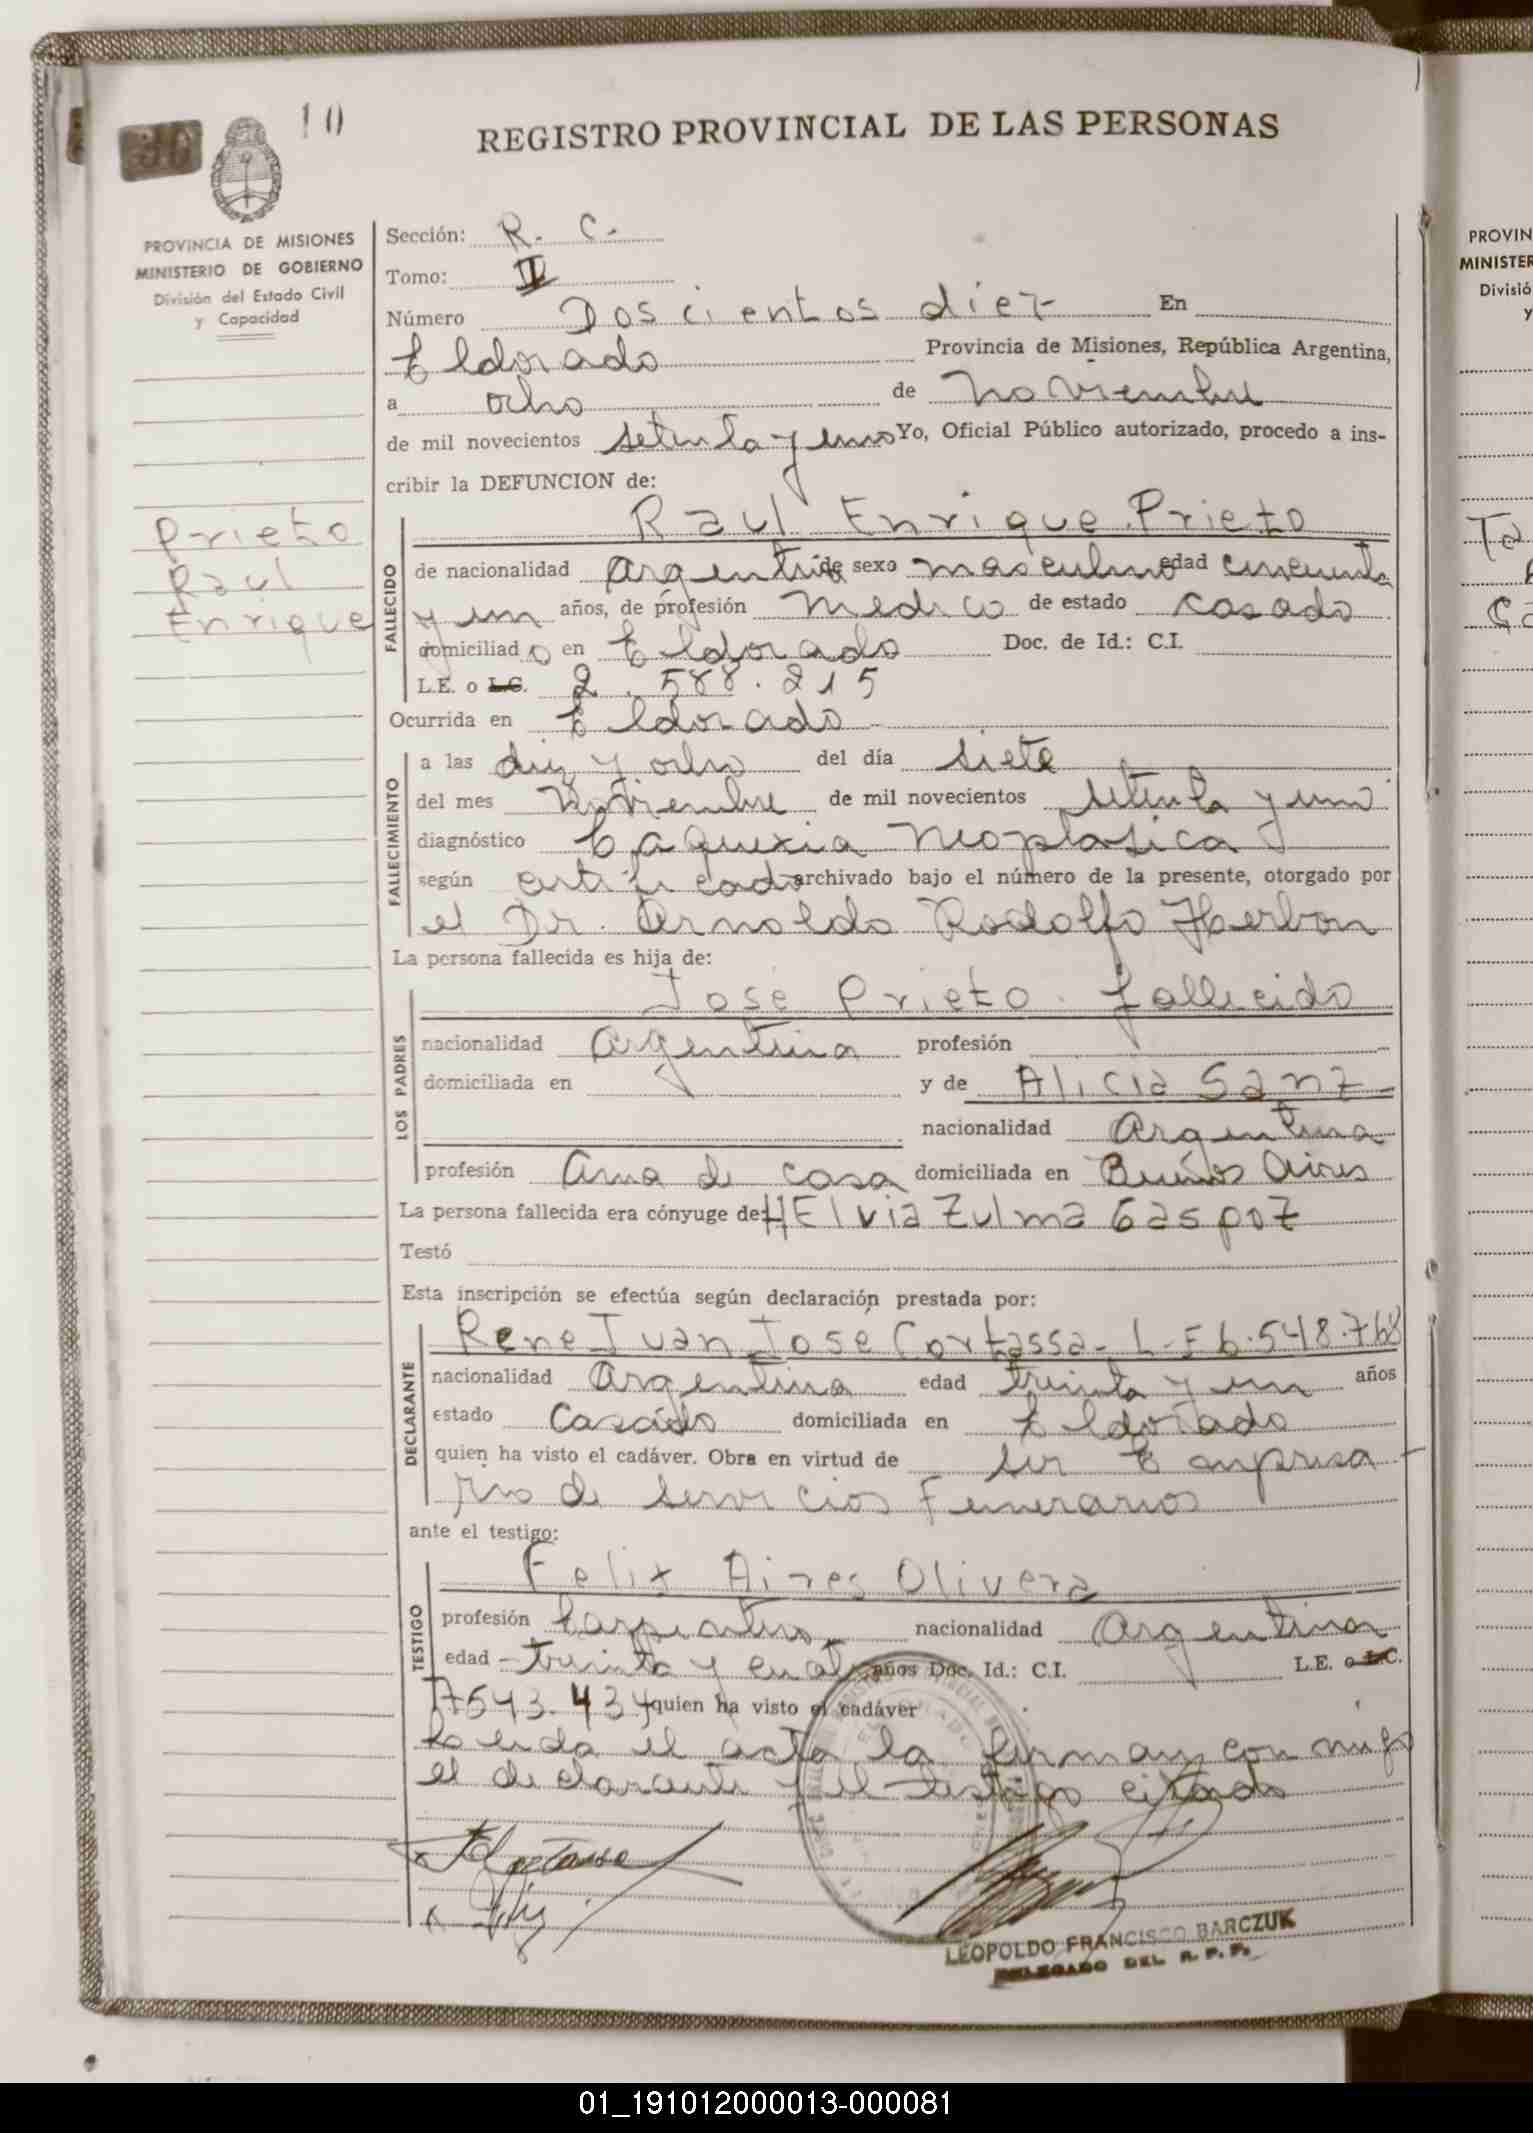 10
REGISTRO PROVINCIAL DE LAS PERSONAS
PROVINCIA DE MISIONES
MINISTERIO DE GOBIERNO
División del Estado Civil
y Capacidad
Prieto
Raul
Enrique
Sección: R. C.
Tomo: II
Número Doscientos diez En
Eldorado Provincia de Misiones, República Argentina,
a ocho de noviembre
de mil novecientos setenta y uno Yo, Oficial Público autorizado, procedo a ins-
cribir la DEFUNCION de:
FALLECIDO
Raul Enrique Prieto
de nacionalidad argentino de sexo masculino edad cincuenta
y un años, de profesión medico de estado casado
domiciliado en Eldorado Doc. de Id.: C.I.
L.E. o L.C. 2.588.215
Ocurrida en Eldorado
FALLECIMIENTO
a las diez y ocho del día siete
del mes noviembre de mil novecientos setenta y uno
diagnóstico Caquexia Neoplasica
según certificado archivado bajo el número de la presente, otorgado por
el Dr. Arnoldo Rodolfo Herbon
La persona fallecida es hija de:
LOS PADRES
José Prieto. fallecido
nacionalidad Argentina profesión
domiciliada en y de Alicia Sanz
nacionalidad Argentina
profesión Ama de casa domiciliada en Buenos Aires
La persona fallecida era cónyuge de: HElvia Zulma Gaspoz
Testó
Esta inscripción se efectúa según declaración prestada por:
DECLARANTE
Rene Juan José Cortassa - L-E 6.548.768
nacionalidad Argentina edad treinta y un años
estado Casado domiciliada en Eldorado
quien ha visto el cadáver. Obra en virtud de ser Empresa-
rio de servicios Funerarios
ante el testigo:
TESTIGO
Felix Aires Olivera
profesión Carpintero nacionalidad Argentina
edad treinta y cuatro años Doc. Id.: C.I. L.E. o L.C.
7543.434 quien ha visto el cadáver
Leida el acta la firman con migo
el declarante y el testigo citado
LEOPOLDO FRANCISCO BARCZUK
DELEGADO DEL R. P. P.
PROVIN
MINISTER
Divisió
y
01_191012000013-000081